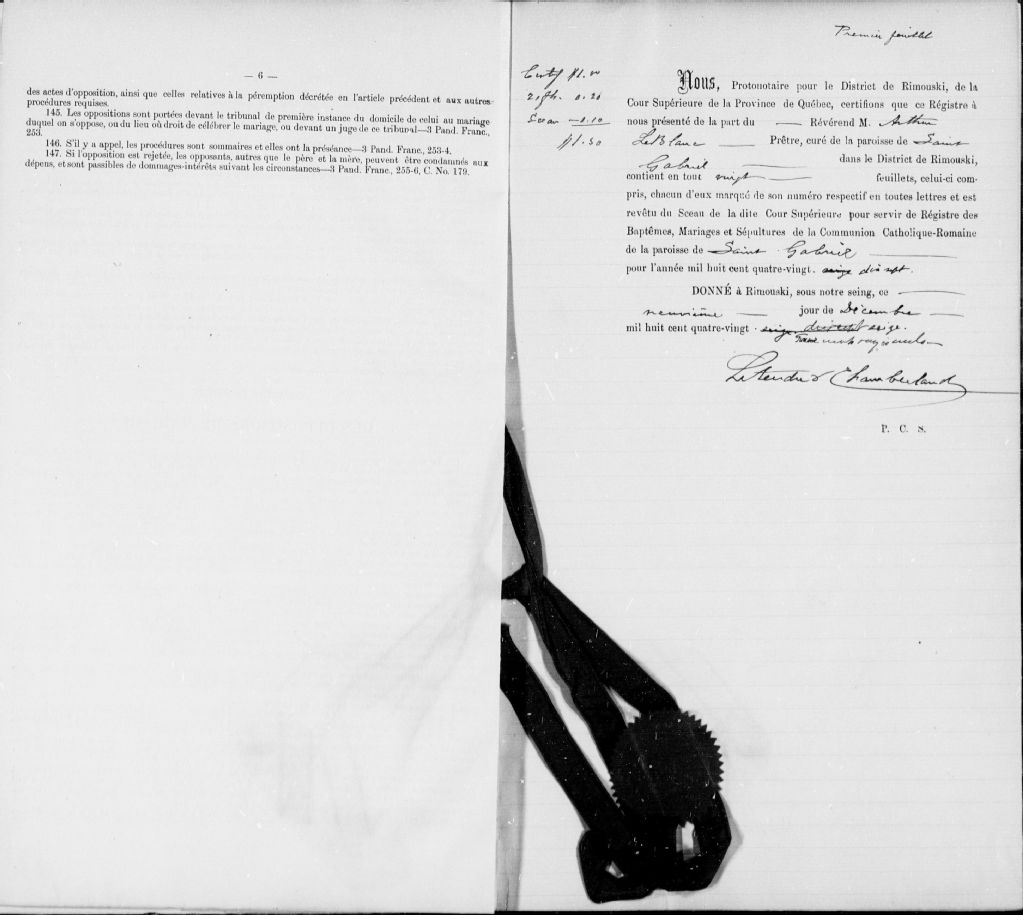 — 6 —
des actes d'opposition, ainsi que celles relatives à la péremption décrétée en l'article précédent et aux autres
procédures requises.
145. Les oppositions sont portées devant le tribunal de première instance du domicile de celui au mariage
duquel on s'oppose, ou du lieu où droit de célébrer le mariage, ou devant un juge de ce tribunal—3 Pand. Franc.,
253.
146. S'il y a appel, les procédures sont sommaires et elles ont la préséance—3 Pand. Franc., 253-4.
147. Si l'opposition est rejetée, les opposants, autres que le père et la mère, peuvent être condamnés aux
dépens, et sont passibles de dommages-intérêts suivant les circonstances—3 Pand. Franc., 255-6, C. No. 179.
Premier feuillet
Certif $1.00
0.20
Sceau — 0.10
$1.30
Nous, Protonotaire pour le District de Rimouski, de la
Cour Supérieure de la Province de Québec, certifions que ce Régistre à
nous présenté de la part du — Révérend M. Arthur
LeBlanc — Prêtre, curé de la paroisse de Saint
Gabriel — dans le District de Rimouski,
contient en tout vingt — feuillets, celui-ci com-
pris, chacun d'eux marqué de son numéro respectif en toutes lettres et est
revêtu du Sceau de la dite Cour Supérieure pour servir de Régistre des
Baptêmes, Mariages et Sépultures de la Communion Catholique-Romaine
de la paroisse de — Saint Gabriel —
pour l'année mil huit cent quatre-vingt. seize dix sept.
DONNÉ à Rimouski, sous notre seing, ce —
neuvième — jour de Décembre —
mil huit cent quatre-vingt - seize.
mots rayés nuls —
Letendre & Chamberland
P. C. S.